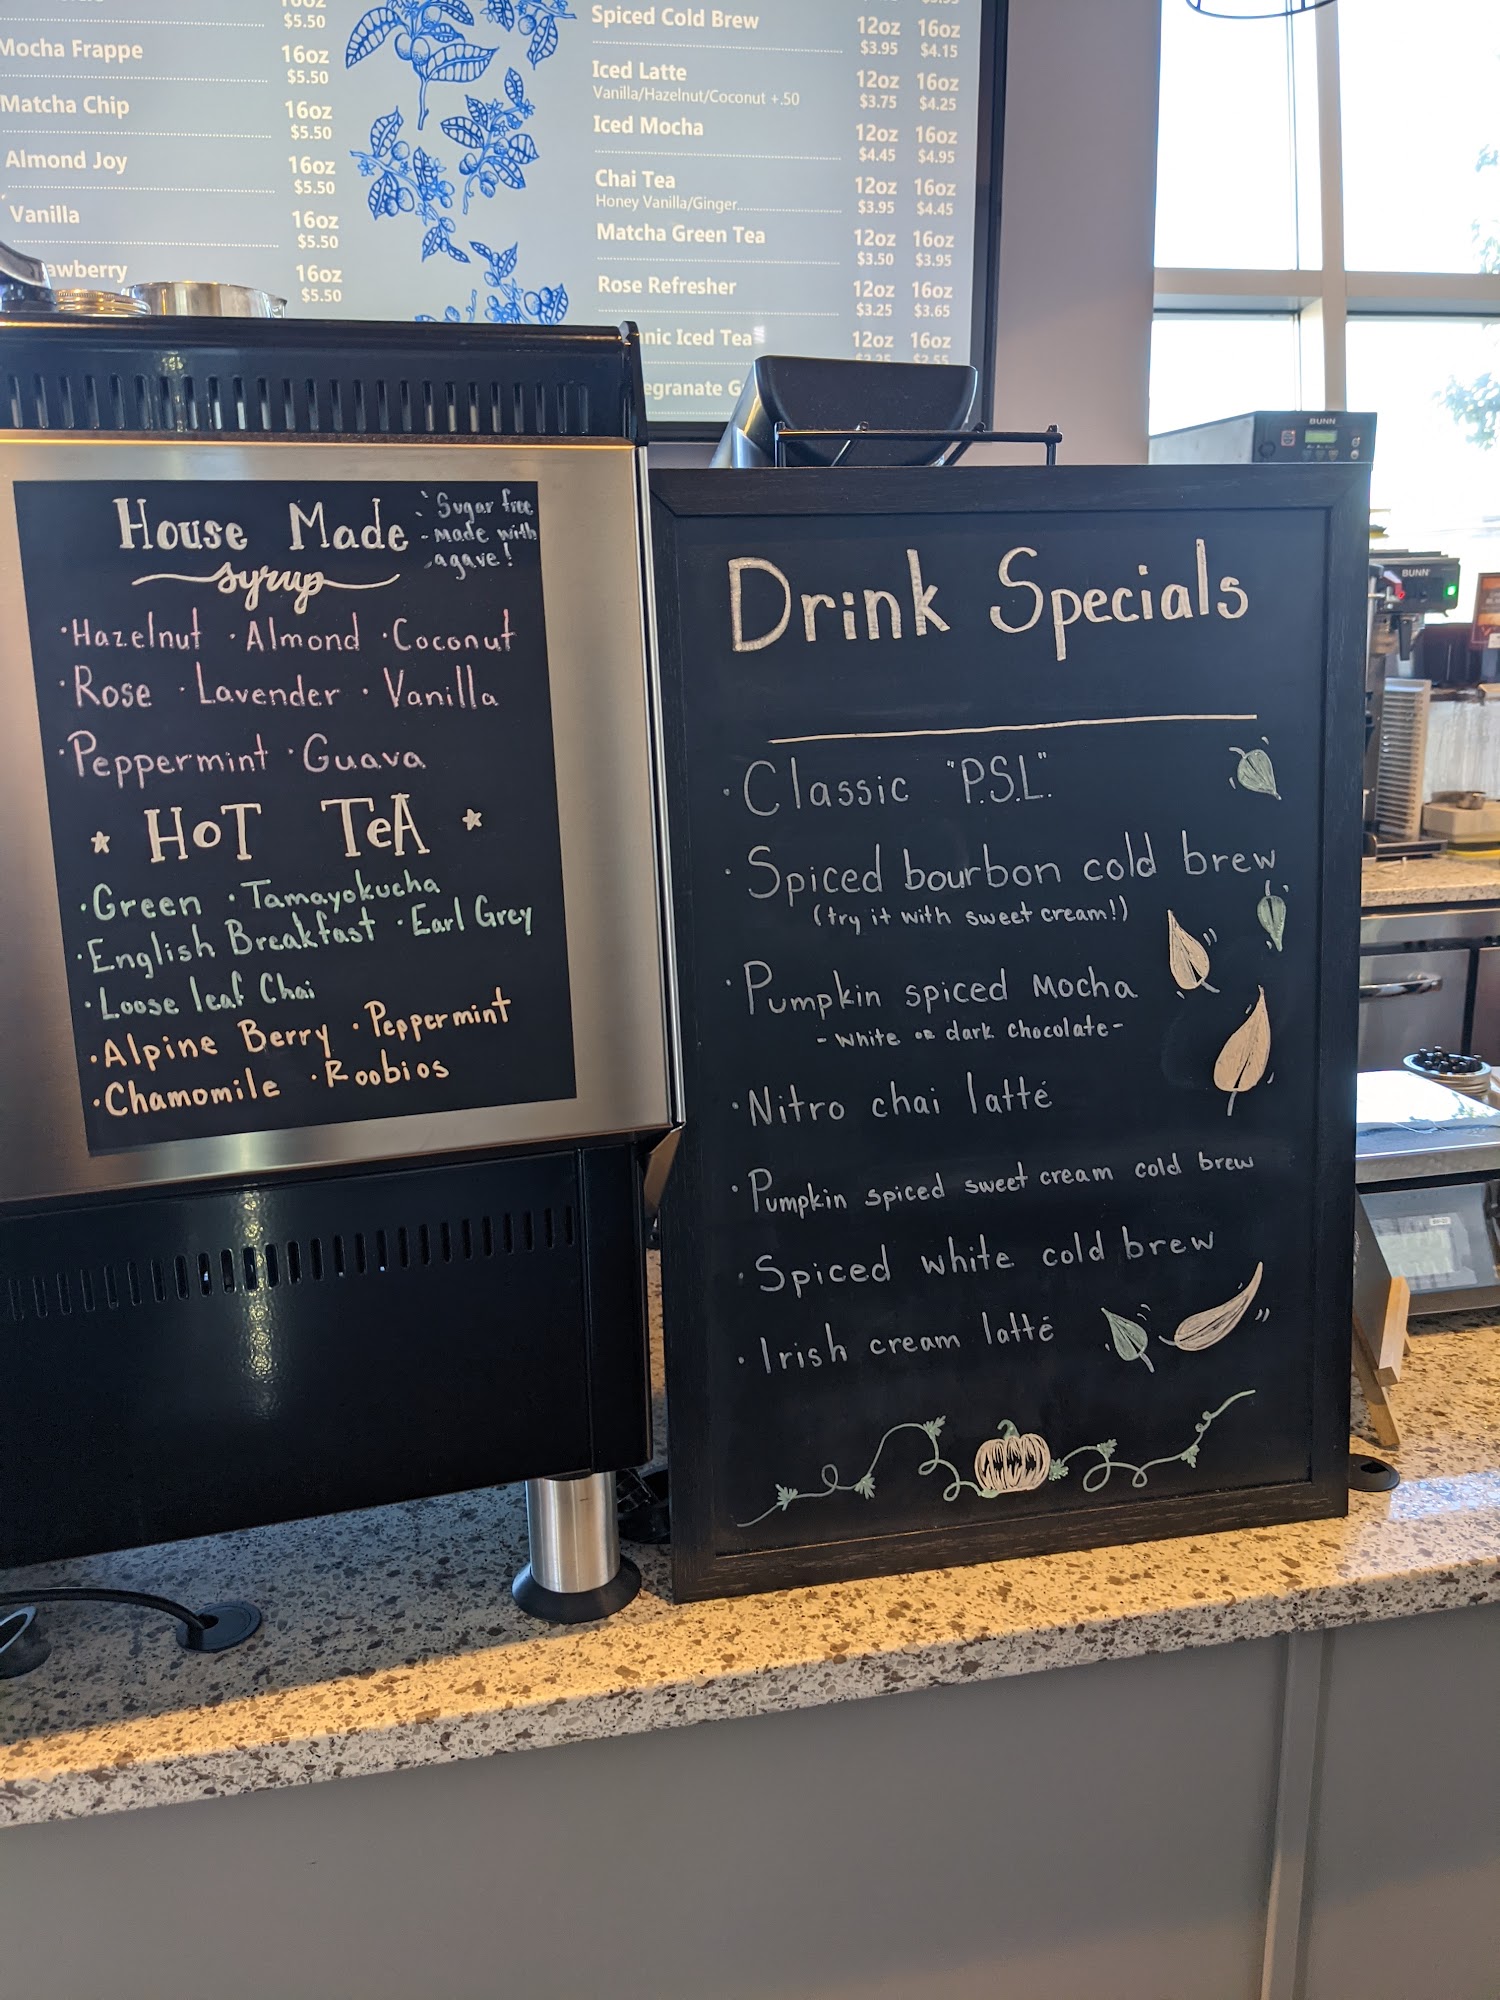 $5.50
Mocha Frappe 16oz
$5.50
Matcha Chip 16oz
$5.50
Almond Joy 16oz
$5.50
Vanilla 16oz
$5.50
16oz
$5.50
Spiced Cold Brew 12oz 16oz
$3.95 $4.15
Iced Latte 12oz 16oz
Vanilla/Hazelnut/Coconut +.50 $3.75 $4.25
Iced Mocha 12oz 16oz
$4.45 $4.95
Chai Tea 12oz 16oz
Honey Vanilla/Ginger $3.95 $4.45
Matcha Green Tea 12oz 16oz
$3.50 $3.95
Rose Refresher 12oz 16oz
$3.25 $3.65
Iced Tea 12oz 16oz
House Made
syrup
Sugar free
- made with
agave!
·Hazelnut ·Almond ·Coconut
·Rose ·Lavender ·Vanilla
·Peppermint ·Guava
HOT TeA
·Green ·Tamayokucha
·English Breakfast ·Earl Grey
·Loose leaf Chai
·Alpine Berry ·Peppermint
·Chamomile ·Roobios
Drink Specials
·Classic "P.S.L."
·Spiced bourbon cold brew
(try it with sweet cream!)
·Pumpkin spiced Mocha
-white or dark chocolate-
·Nitro chai latté
·Pumpkin spiced sweet cream cold brew
·Spiced white cold brew
·Irish cream latté
BUNN
BUNN